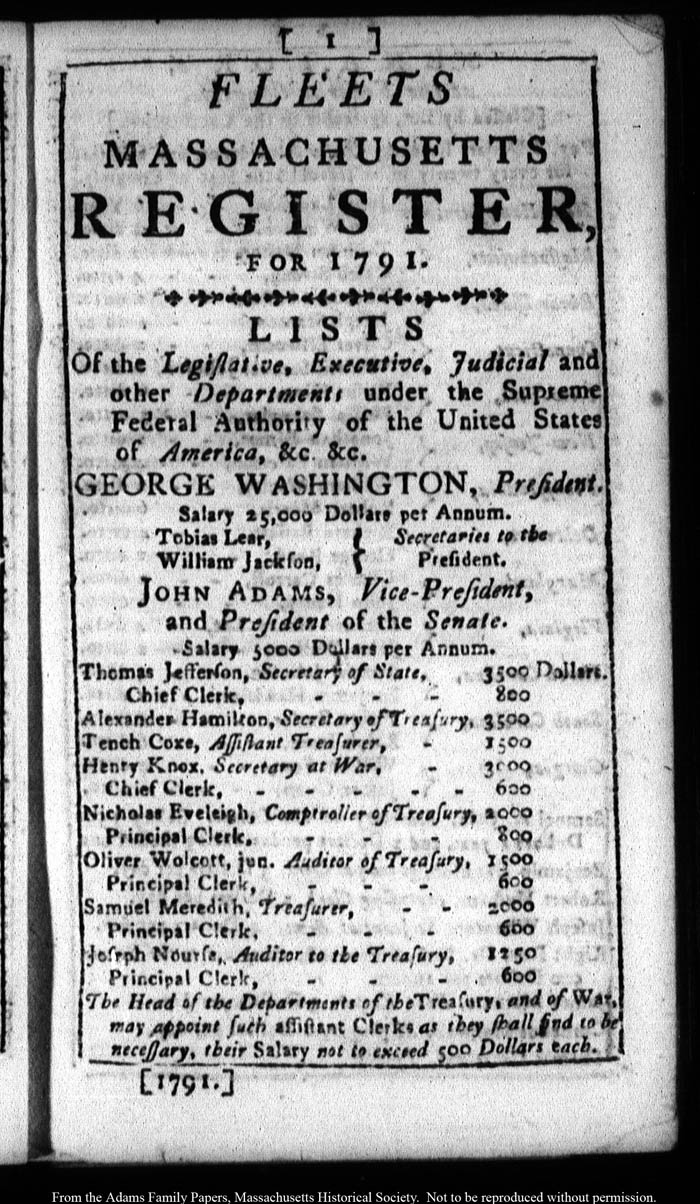 [ 1 ]
FLEETS
MASSACHUSETTS
REGISTER,
FOR 1791.
LISTS
Of the Legiſlative, Executive, Judicial and
other Departments under the Supreme
Federal Authority of the United States
of America, &c. &c.
GEORGE WASHINGTON, Preſident.
Salary 25,000 Dollars per Annum.
Tobias Lear, { Secretaries to the
William Jackſon, { Preſident.
JOHN ADAMS, Vice-Preſident,
and Preſident of the Senate.
Salary 5000 Dollars per Annum.
Thomas Jefferſon, Secretary of State, 3500 Dollars.
Chief Clerk, - - - 800
Alexander Hamilton, Secretary of Treaſury, 3500
Tench Coxe, Aſſiſtant Treaſurer, - 1500
Henry Knox, Secretary at War, - 3000
Chief Clerk, - - - - - 600
Nicholas Eveleigh, Comptroller of Treaſury, 2000
Principal Clerk, - - - 800
Oliver Wolcott, jun. Auditor of Treaſury, 1500
Principal Clerk, - - - 600
Samuel Meredith, Treaſurer, - - 2000
Principal Clerk, - - - 600
Joſeph Nourſe, Auditor to the Treaſury, 1250
Principal Clerk, - - - 600
The Head of the Departments of the Treaſury, and of War,
may appoint ſuch aſſiſtant Clerks as they ſhall find to be
neceſſary, their Salary not to exceed 500 Dollars each.
[1791.]
From the Adams Family Papers, Massachusetts Historical Society. Not to be reproduced without permission.